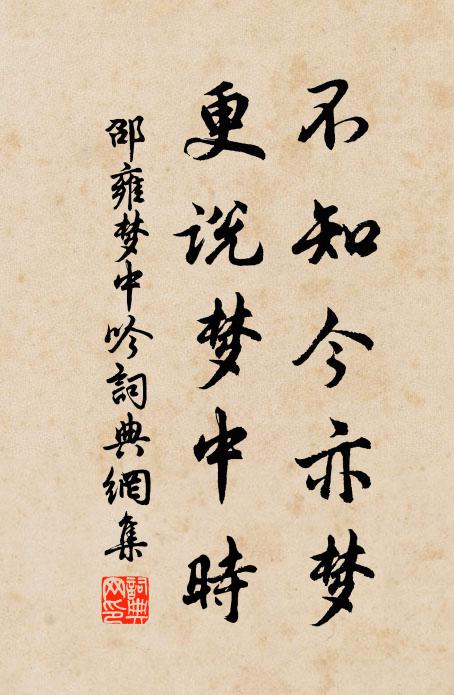 不知今亦梦
更说梦中時
邵雍梦中吟詞典網集
詞典网印